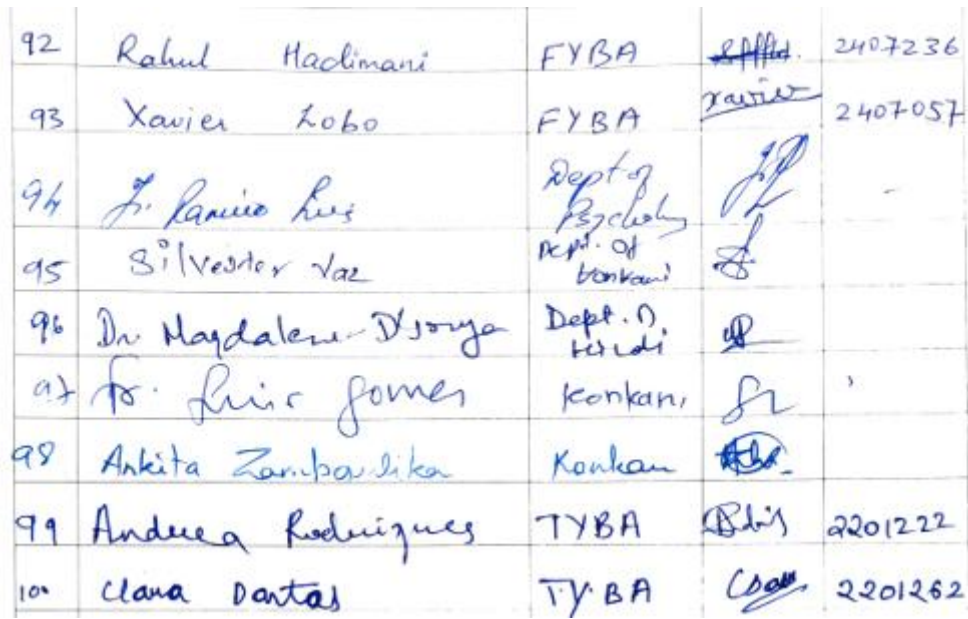 92 Rahul Hadimani FYBA 2407236
93 Xavier Lobo FYBA Xavier 2407057
94 Fr. Ramiro Luis Dept of Psychology -
95 Silvester Vaz Dept. of Konkani
96 Dr. Magdalene D'Souza Dept. of Hindi
97 Fr. Luis Gomes Konkani
98 Ankita Konkani
99 Andrea Rodrigues TYBA 2201222
100 Clara Dantas T.Y.BA 2201262